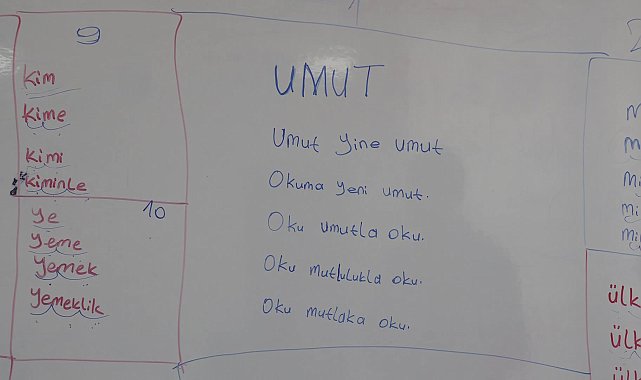 9
kim
kime
kimi
kiminle
10
ye
yeme
yemek
yemeklik
UMUT
Umut yine umut
Okuma yeni umut.
Oku umutla oku.
Oku mutlulukla oku.
Oku mutlaka oku.
ülk
ülk